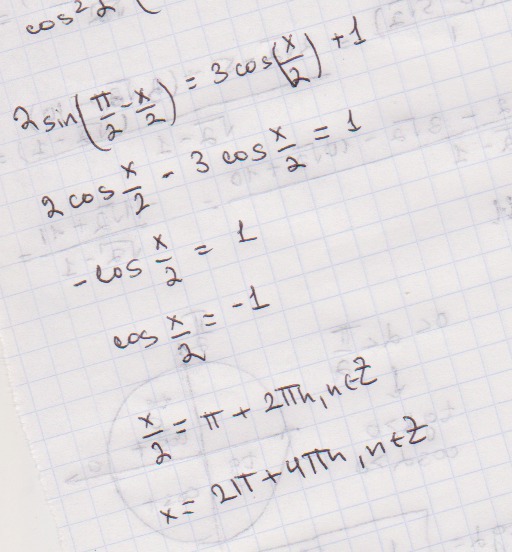 cos²2(
2sin(π/2 - x/2) = 3cos(x/2) + 1
2cos x/2 - 3cos x/2 = 1
-cos x/2 = 1
cos x/2 = -1
x/2 = π + 2πn, n∈Z
x = 2π + 4πn, n∈Z